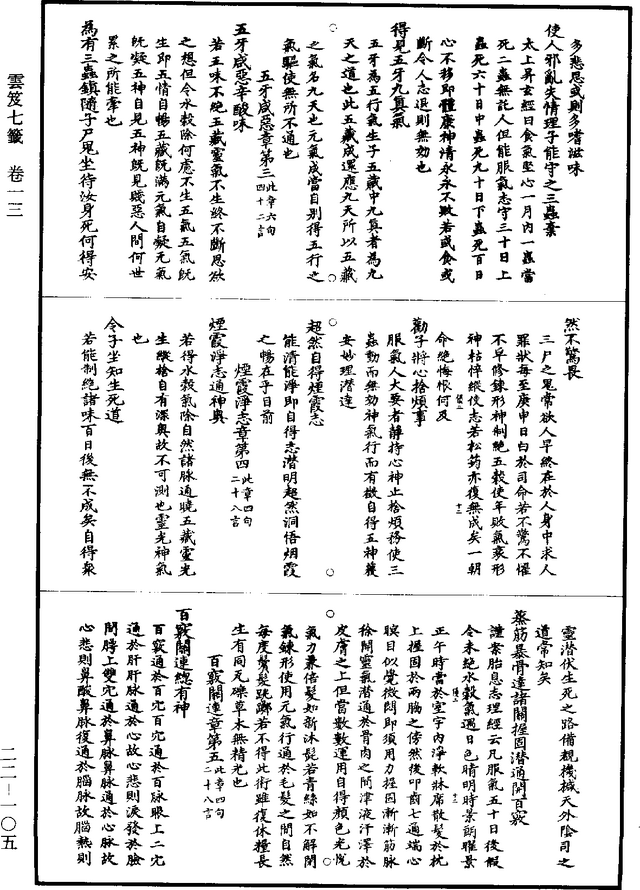 雲笈七籤　卷一三
多悲思或則多嗜滋味
使人邪亂失情理子能守之三蟲棄
太上昇玄經曰食氣堅心一月內一蟲當
死二蟲無託人但能服氣志守三十日上
蟲死六十日中蟲死九十日下蟲死百日
心不移即體康神清永永不敗若或食或
斷令人志退則無効也
得見五牙九真氣
五牙為五行氣生子五藏中九真者為九
天之道也此五藏咸還應九天所以五藏
之氣名九天也元氣成當自别得五行之
氣驅使無所不通也
五牙咸惡章第三此章六句四十二言
五牙咸惡辛酸味
若五味不絶五藏靈氣不生終不斷思欲
之想但令水穀除何慮不生五氣五氣旣
生即五情自暢五藏旣滿元氣自凝元氣
旣凝五神自見五神旣見賤惡人間何世
累之所能牽也
為有三蟲鎮隨子尸鬼坐待汝身死何得安
然不驚畏
三尸之鬼常欲人早終在於人身中求人
罪狀每至庚申日白於司命若不驚不懼
不早修鍊形神制絶五穀使年敗氣衰形
神枯悴縱使志若松筠亦復無成矣一朝
命絶悔恨何及
勸子將心捨煩事
服氣人大要者靜持心神止捨煩務使三
蟲動而無効神氣行而有徵自得五神蘘
安妙理潜達
超然自得煙霞志
能清能淨即自得志潜明超然洞悟烟霞
之暢在乎目前
煙霞淨志章第四此章四句二十八言
煙霞淨志通神輿
若得水穀氣除自然諸脉通曉五藏靈光
生縱捨自有深輿故不可測也靈光神氣
也
令子坐知生死道
若能制絶諸味百日後無不成矣自得衆
靈潜伏生死之路備覩機械天外陰司之
道常知矣
蒸筋暴骨達諸關握固潜通開百竅
謹案胎息志理經云凡服氣五十日後假
令未絶水穀氣遇日色晴明時景朗曜景
正午時當於室宇內淨軟牀席散髪於枕
上握固於兩脇之傍然後叩齒七通端心
瞑目似覺微悶即須用力握固漸漸筋脉
徐開靈氣潜通於骨肉之間津液汗澤於
皮膚之上但當數數運用自得顏色光恱
氣力兼倍髪如新沐髭若青絲如不解閉
氣鍊形使用元氣行通於毛髪之間自然
每度鬢髪跳躑若不得此術雖復休糧長
生有同瓦礫草木無精光也
百竅關連章第五此章四句二十八言
百竅關連總有神
百竅通於百穴百穴通於百脉眼上二穴
通於肝肝脉通於心故心悲則淚發於臉
間膊上雙穴通於鼻脉鼻脉通於心脉故
心悲則鼻酸鼻脉復通於腦脉故腦熱則
二二—一〇五